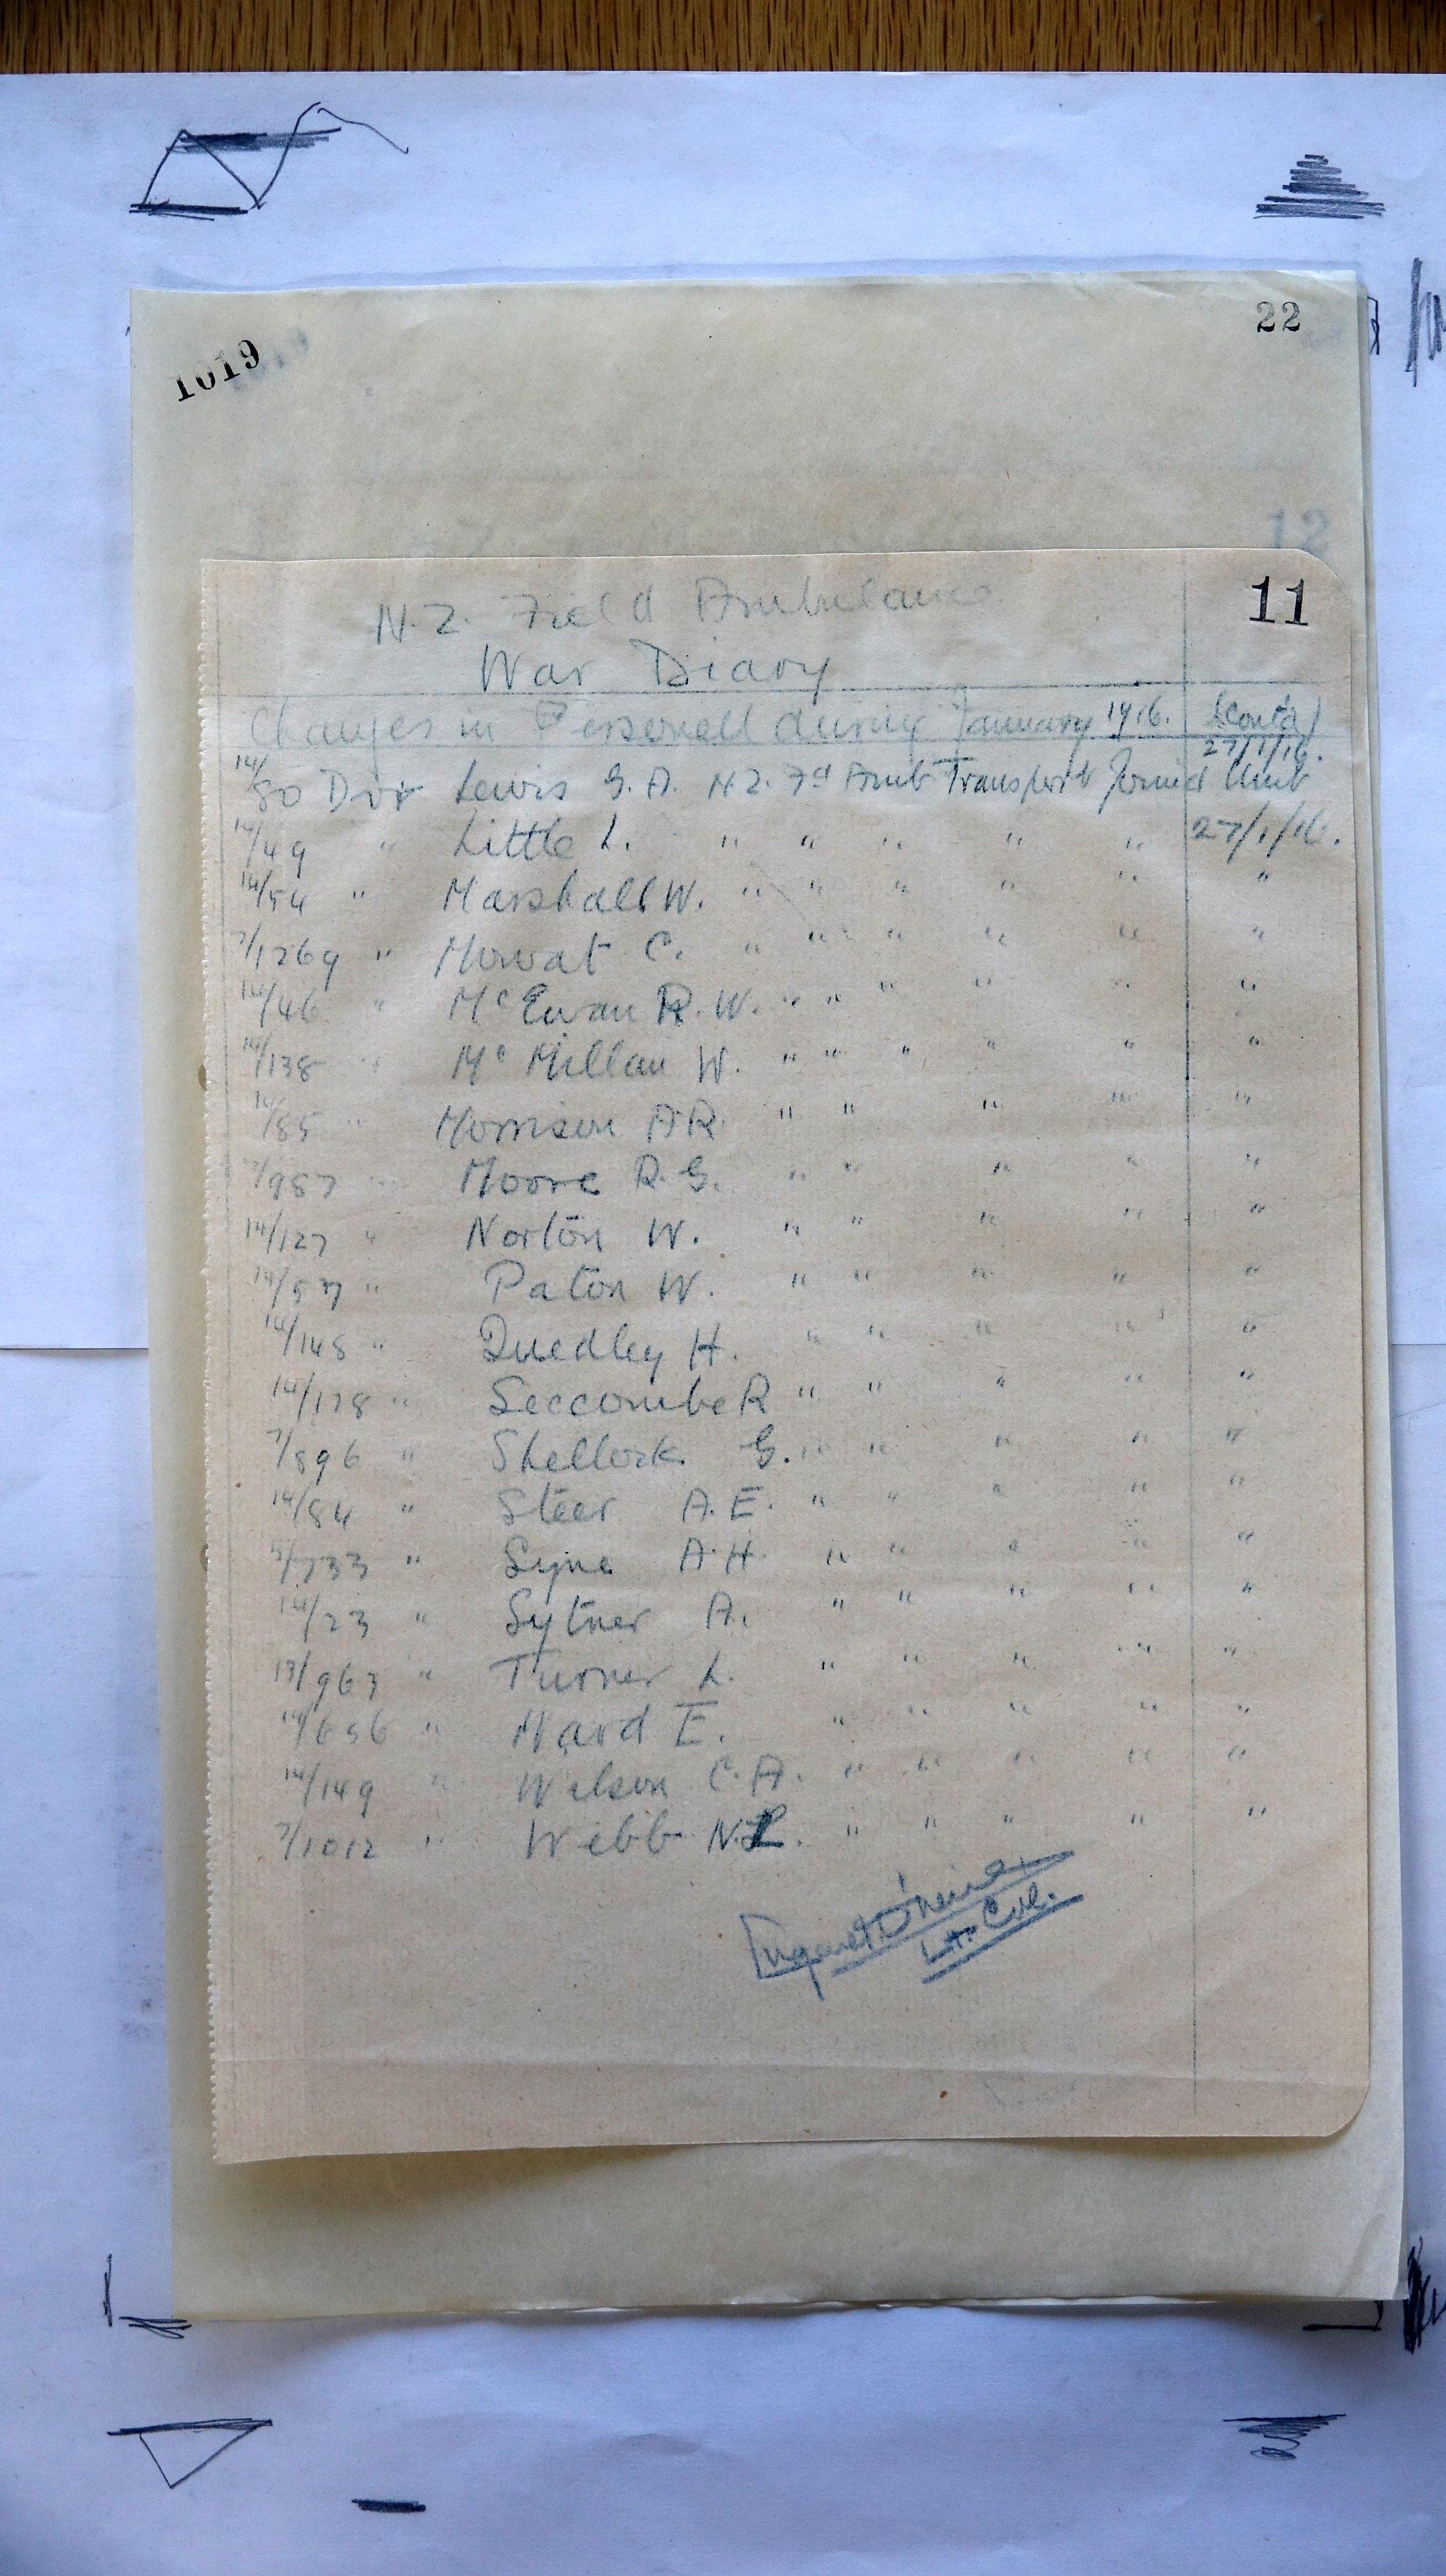 22
1019
11
N.Z. Field Ambulance
War Diary
Changes in Personell during January 1916. (Contd)
27/1/16.
14/80 Dvr Lewis G. A. N.Z. Fd Amb Transport Joined Unit
14/49 " Little L. " " " " " 27/1/16.
14/54 " Marshall W. " " " " " "
7/1269 " Mowat C. " " " " " "
14/46 " McEwan R. W. " " " " " "
14/138 " McMillan W. " " " " " "
14/85 " Morrison A R " " " " "
7/987 " Moore R. G. " " " " "
14/127 " Norton W. " " " " "
14/57 " Paton W. " " " " "
14/148 " Quedley H. " " " " "
14/128 " Seccombe R " " " " "
7/896 " Shellock. G. " " " " "
14/84 " Steer A. E. " " " " "
5/733 " Syne A. H. " " " " "
14/23 " Sytner A. " " " " "
13/963 " Turner L. " " " " "
14/656 " Ward E. " " " " "
14/149 " Wilson C. A. " " " " "
7/1012 " Webb N. P. " " " " "
Lt. Col.